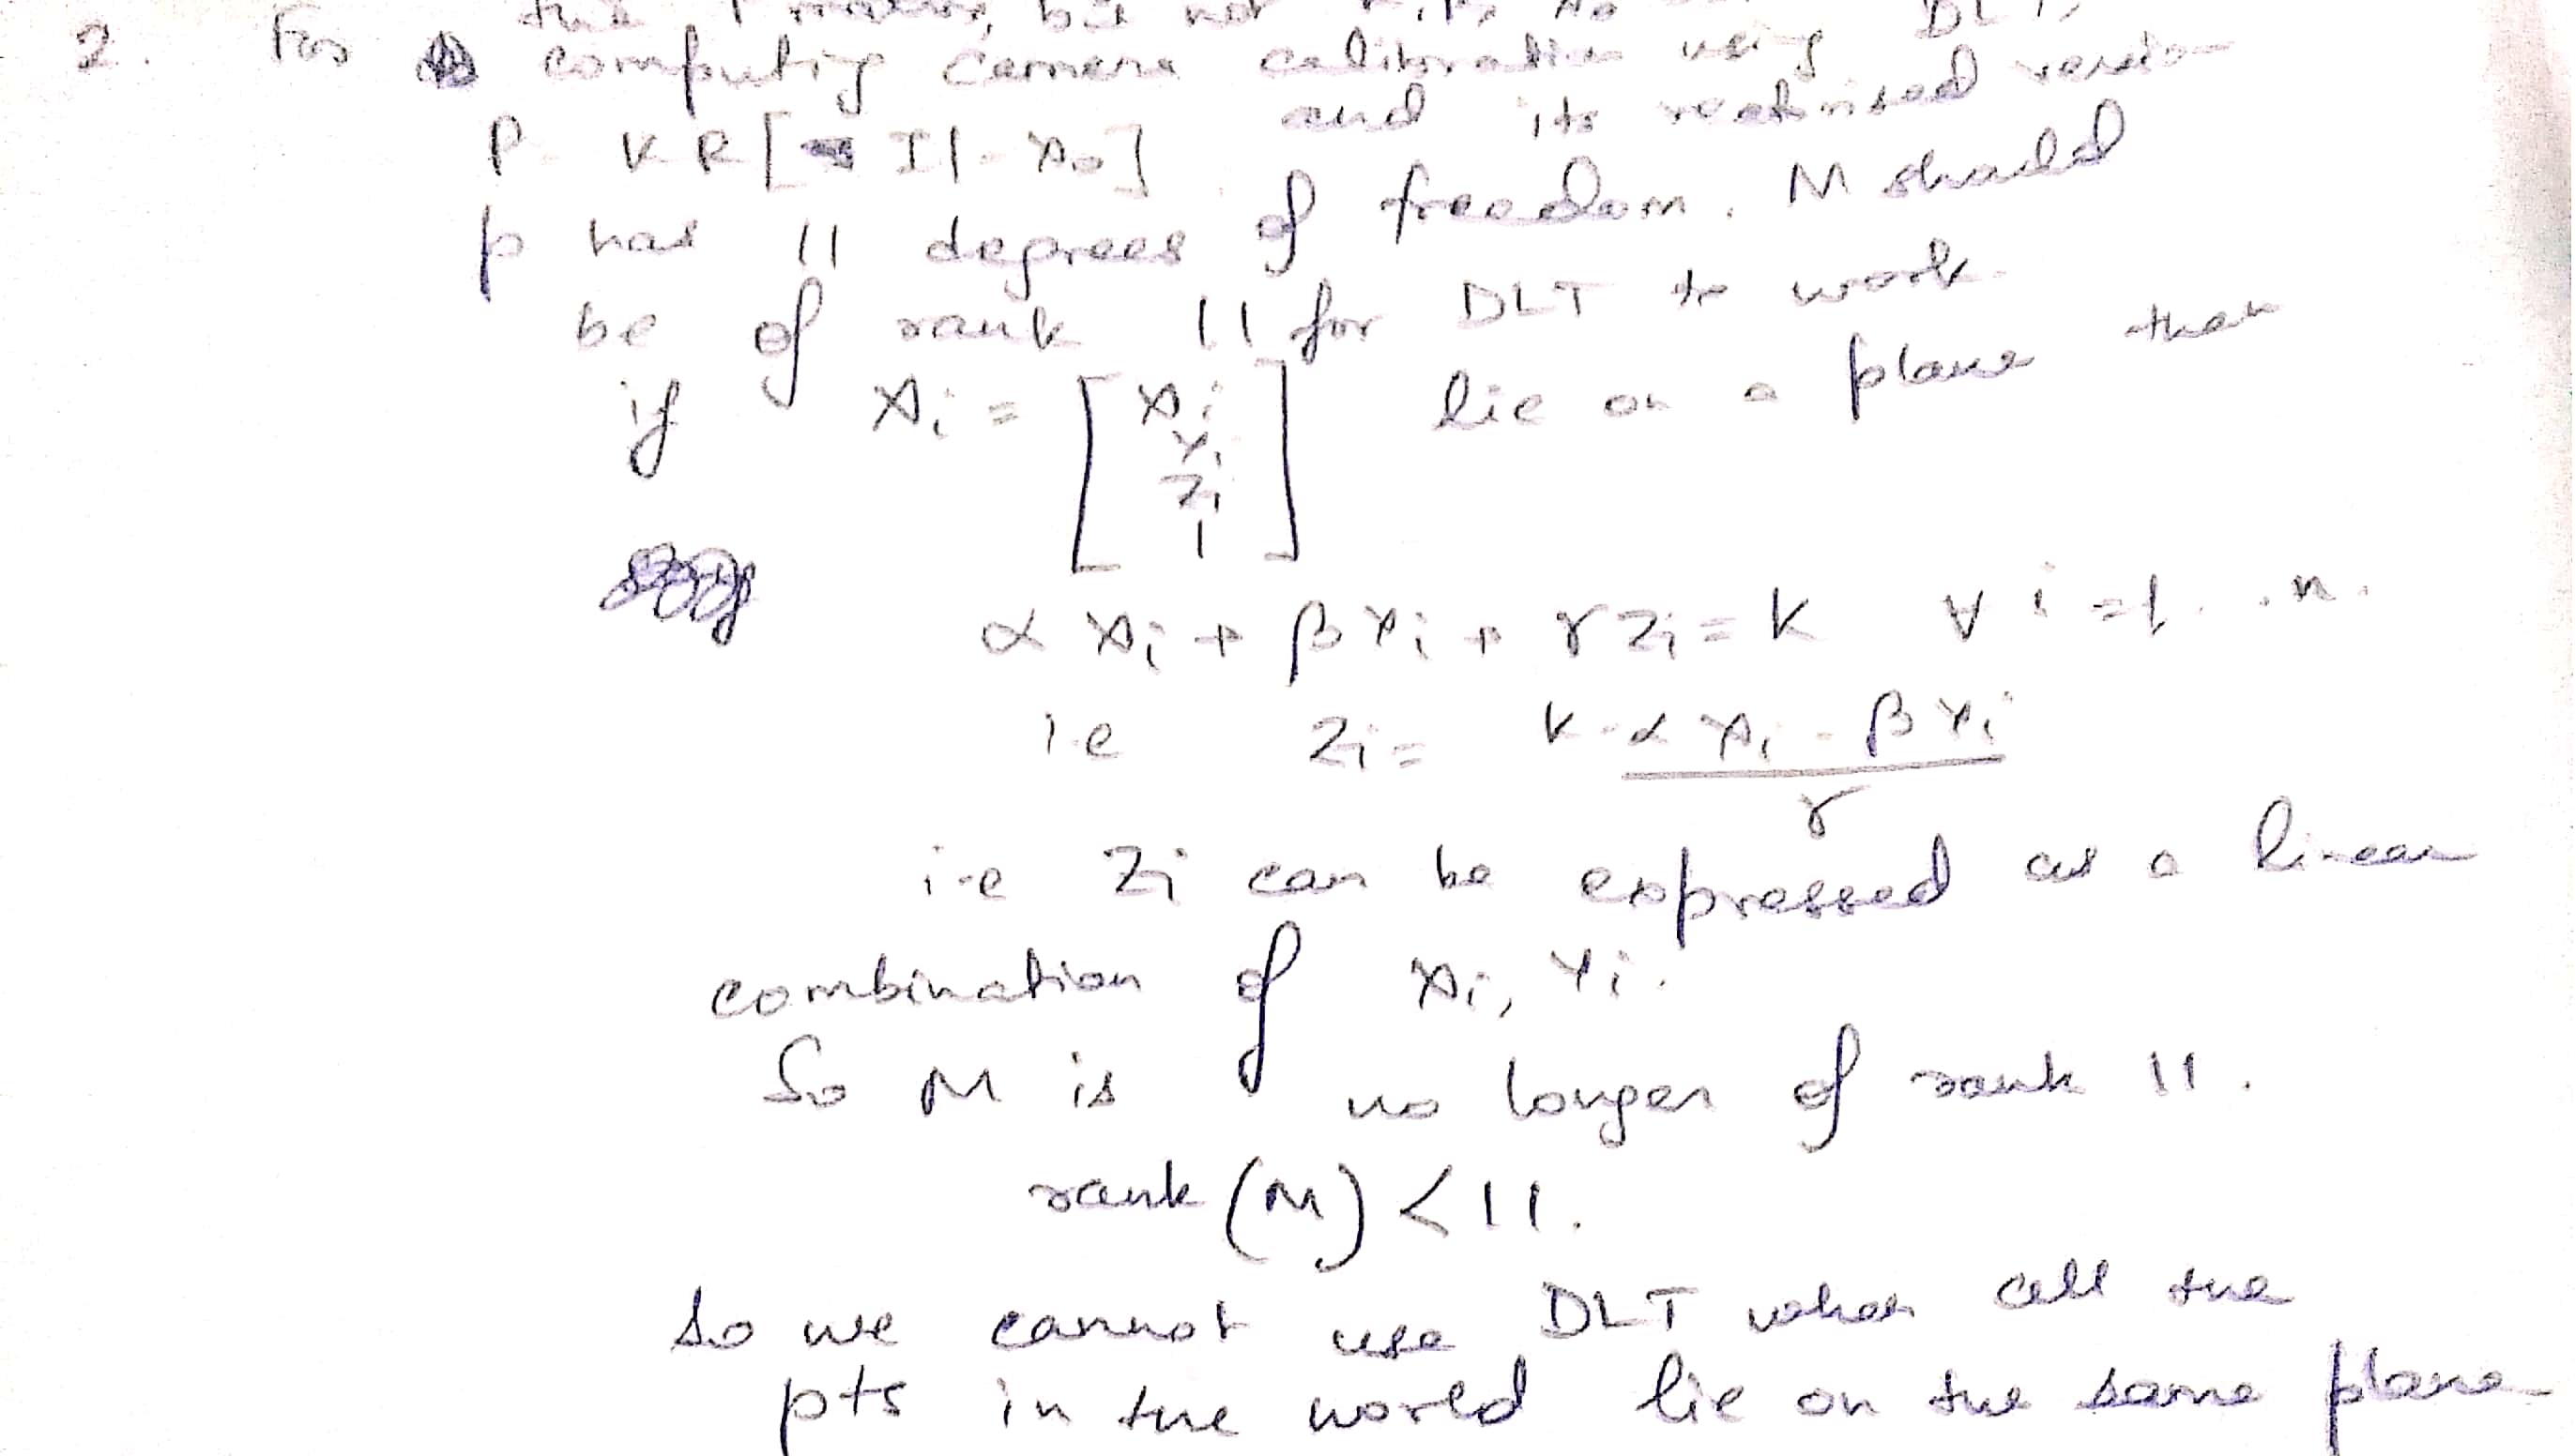 the P matrix, but not
2. For computing camera calibration using DLT,
P = KR[I|-X₀] and its vectorised version
p has 11 degrees of freedom. M should
be of rank 11 for DLT to work.
if Xᵢ = [Xᵢ Yᵢ Zᵢ 1] lie on a plane then
α Xᵢ + β Yᵢ + γ Zᵢ = K ∀ i = 1...n.
i.e Zᵢ = K - α Xᵢ - β Yᵢ / γ
i.e Zᵢ can be expressed as a linear
combination of Xᵢ, Yᵢ.
So M is no longer of rank 11.
rank (M) < 11.
So we cannot use DLT when all the
pts in the world lie on the same plane